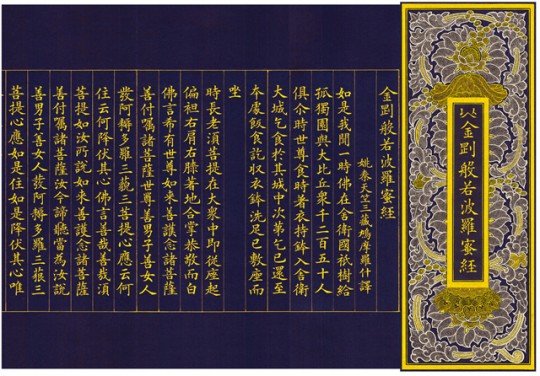 金剛般若波羅蜜經
金剛般若波羅蜜經
姚秦天竺三藏鳩摩羅什譯
如是我聞一時佛在舍衛國祇樹給
孤獨園與大比丘衆千二百五十人
俱尒時世尊食時著衣持鉢入舍衛
大城乞食於其城中次第乞已還至
本處飯食訖收衣鉢洗足已敷座而
坐
時長老湏菩提在大衆中即從座起
偏袒右肩右膝著地合掌恭敬而白
佛言希有世尊如來善護念諸菩薩
善付囑諸菩薩世尊善男子善女人
發阿耨多羅三藐三菩提心應云何
住云何降伏其心佛言善哉善哉湏
菩提如汝所說如來善護念諸菩薩
善付囑諸菩薩汝今諦聽當為汝說
善男子善女人發阿耨多羅三藐三
菩提心應如是住如是降伏其心唯